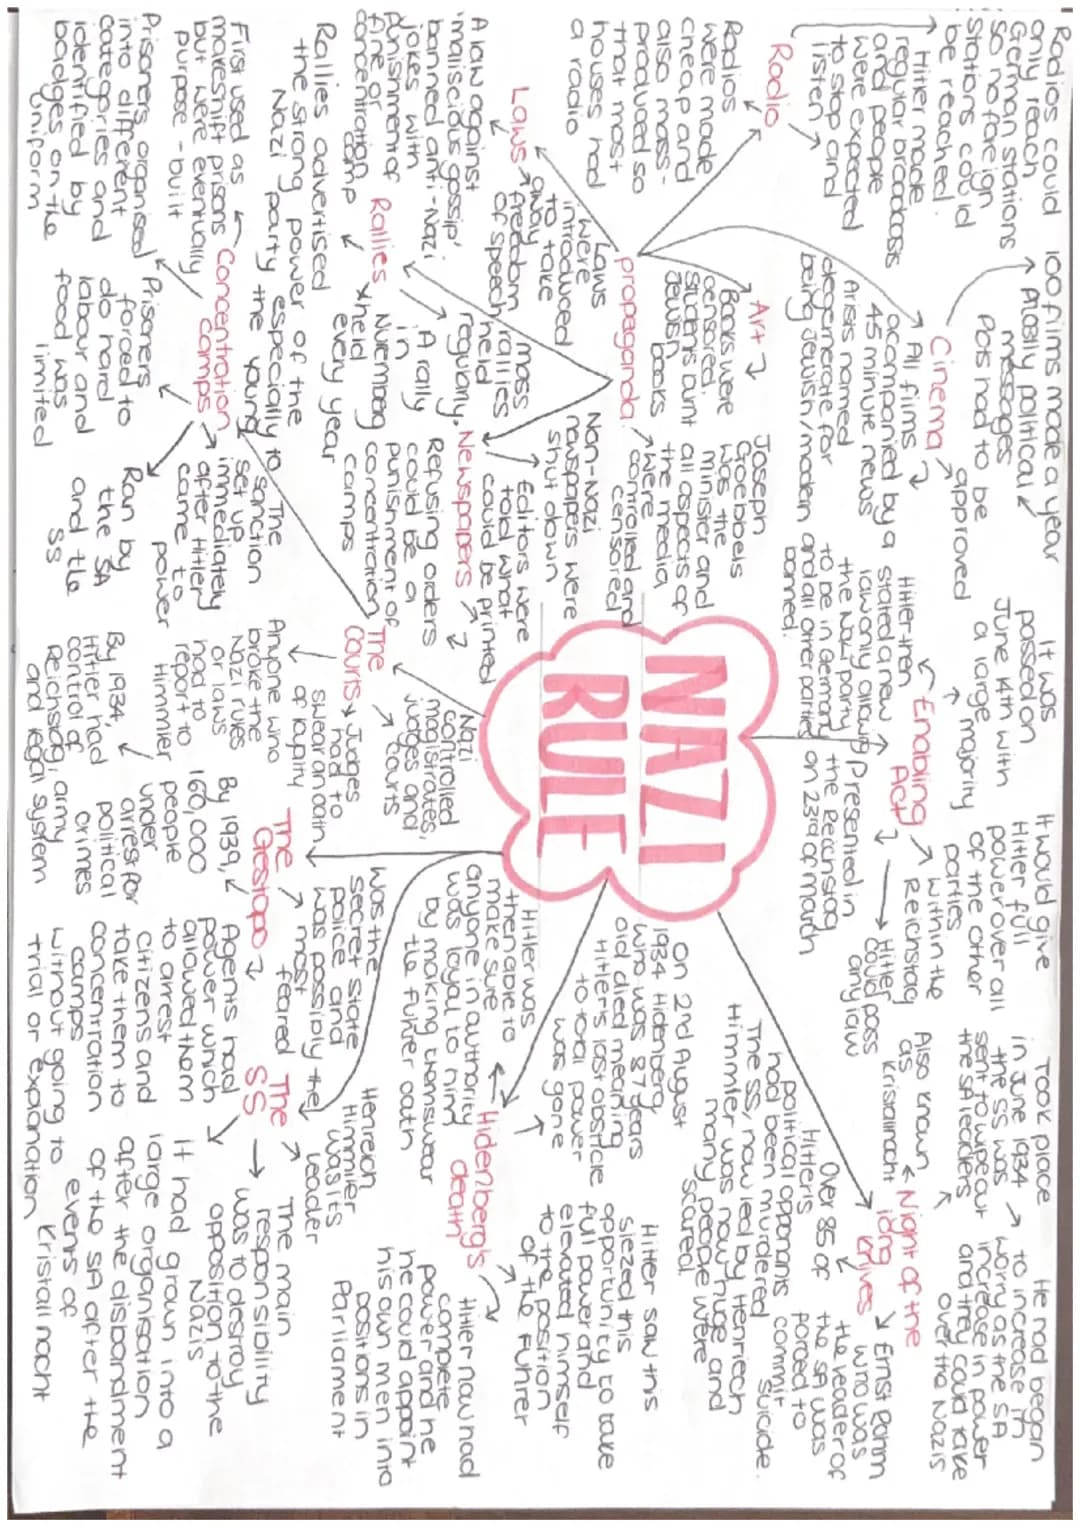 NAZI
RULE
Radios could
only reach
German stations
so no foreign
stations could
be reached.
Hitler made
regular broadcasts
and people
were expected
to stop and
listen
Radio
Radios
were made
cheap and
also mass-
produced so
that most
houses had
a radio
100 films made a year
Mostly political
messages
Plots had to be
approved
Cinema
All films
accompanied by a
45 minute news
Art
Artists named
degenerate for
being Jewish/modern
Books were
censored.
Students burnt
Jewish books
propaganda
Joseph
Goebbels
was the
minister and
all aspects of
the media
were
controlled and
censored
Laws
Laws
were
introduced
to take
away
freedom
of speech
A law against
'maliscious gossip'
banned anti-Nazi
jokes with
punishment of
fine or
concentration
camp
Rallies
mass
rallies
held
regularly.
A rally
in
Nuremberg
held
every year
Rallies advertised
the strong power of the
Nazi party especially to
the young
Newspapers
Non-Nazi
newspapers were
shut down
Editors were
told what
could be printed
Refusing orders
could be a
punishment of
concentration
camps
Concentration
camps
First used as
makeshift prisons
but were eventually
purpose-built
Prisoners organised
into different
categories and
identified by
badges on the
uniform
Prisoners
forced to
do hard
labour and
food was
limited
Ran by
the SA
and the
SS
The
sanction
set up
immediately
after Hitler
came to
power
The
Courts
Nazi
controlled
magistrates,
judges and
courts
Judges
had to
swear an oath
of loyalty
Anyone who
broke the
Nazi rules
or laws
had to
report to
Himmler
By 1934,
Hitler had
control of
Reichstag, army
and legal system
The
Gestapo
was the
secret state
police and
was possibly the
most
feared
By 1939,
160,000
people
under
arrest for
political
crimes
Agents had
power which
allowed them
to arrest
citizens and
take them to
concentration
camps
without going to
trial or explanation
The
SS
Henreich
Himmler
was its
leader
The main
responsibility
was to destroy
opposition to the
Nazis
It had grown into a
large organisation
after the disbandment
of the SA after the
events of
Kristall nacht
Hidenberg's
death
On 2nd August
1934 Hidenberg
who was 87 years
old died meaning
Hitlers last obstacle
to total power
was gone
Hitler was
then able to
make sure
anyone in authority
was loyal to him
by making them swear
the Fuhrer oath
Hitler saw this
siezed this
opportunity to take
full power and
elevated himself
to the position
of the Fuhrer
Hitler now had
complete
power and he
he could appoint
his own men into
positions in
Parliament
Night of the
long
knives
Also known
as
Kristallnacht
Took place
in June 1934
the SS was
sent to wipe out
the SA leaders
He had began
to increase in
worry as the SA
increase in power
and they could take
over the Nazis
Ernst Rohm
who was
the leader of
the SA was
forced to
commit
suicide.
Over 85 of
Hitler's
political opponants
had been murdered
The SS, now led by Henreich
Himmler was now huge and
many people were
scared.
Enabling
Act
It was
passed on
June 14th with
a large
majority
It would give
Hitler full
power over all
of the other
parties
Within the
Reichstag
Hitler
could pass
any law
Presented in
the Reichstag
on 23rd of march
Hitler then
stated a new
law only allowing
the Nazi party
to be in Germany
and all other parties
banned.